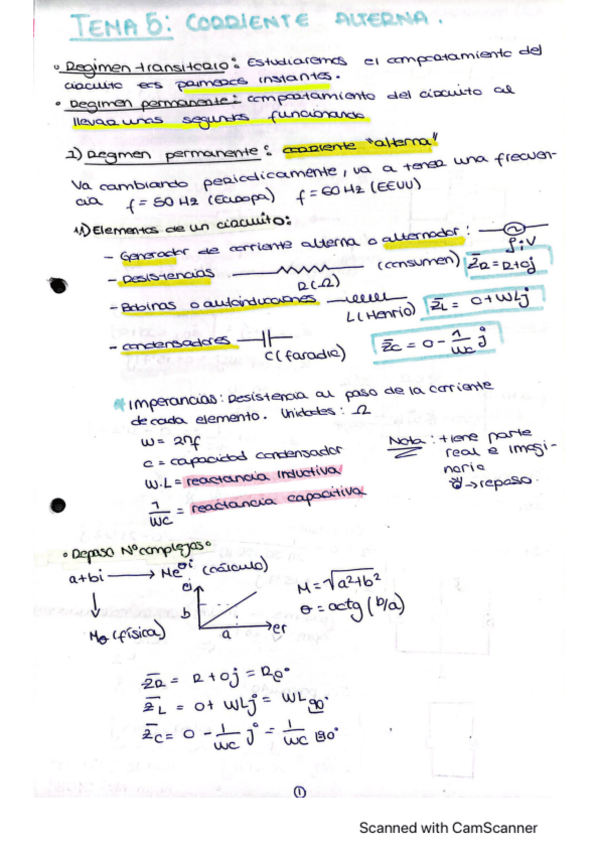 TEMA 5: CORRIENTE ALTERNA.
• Regimen transitorio: Estudiaremos el comportamiento del
circuito en primeros instantes.
• Regimen permanente: comportamiento del circuito al
llevar unos segundos funcionando
1) Regmen permanente: corriente "alterna"
Va cambiando periodicamente, va a tener una frecuen-
cia f = 50 Hz (Europa) f = 60 Hz (EEUU)
1.1) Elementos de un circuito:
- Generador de corriente alterna o alternador:
f; V
- Resistencias (consumen) Z̄R = R+0j
R(Ω)
- Bobinas o autoinducciones Z̄L = 0+WLj
L(Henrio)
- condensadores Z̄C = 0 - 1/WC j
C(faradio)
* Imperancias: Resistencia al paso de la corriente
de cada elemento. Unidades: Ω
W = 2πf
C = capacidad condensador
W.L = reactancia inductiva
1/WC = reactancia capacitiva
Nota: tiene parte
real e imagi-
naria
→ repaso.
• Repaso Nº complejos •
a+bi → Me^θi (cálculo)
ei
b
a
er
Mθ (física)
M = √a²+b²
θ = arctg (b/a)
Z̄R = R+0j = R0°
Z̄L = 0+ WLj = WL 90°
Z̄C = 0 - 1/WC j = 1/WC
1
Scanned with CamScanner